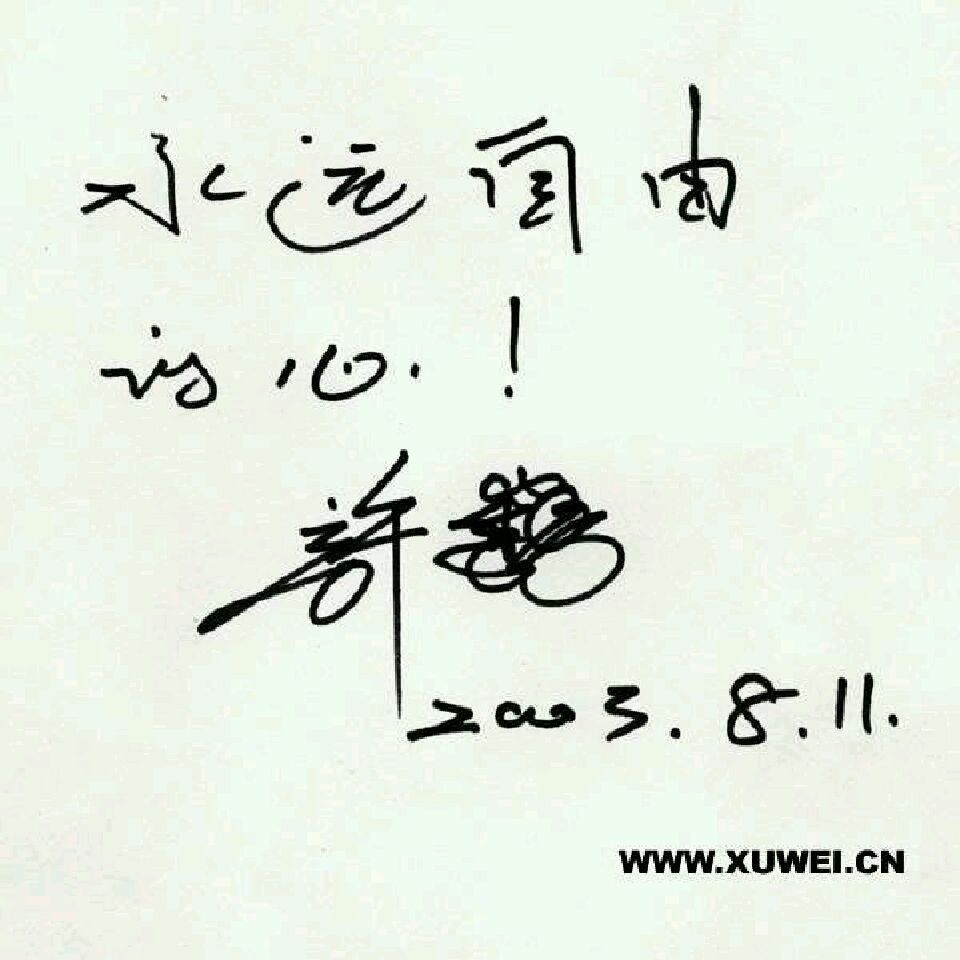 永远自由
的心！
许巍
2003.8.11.
WWW.XUWEI.CN